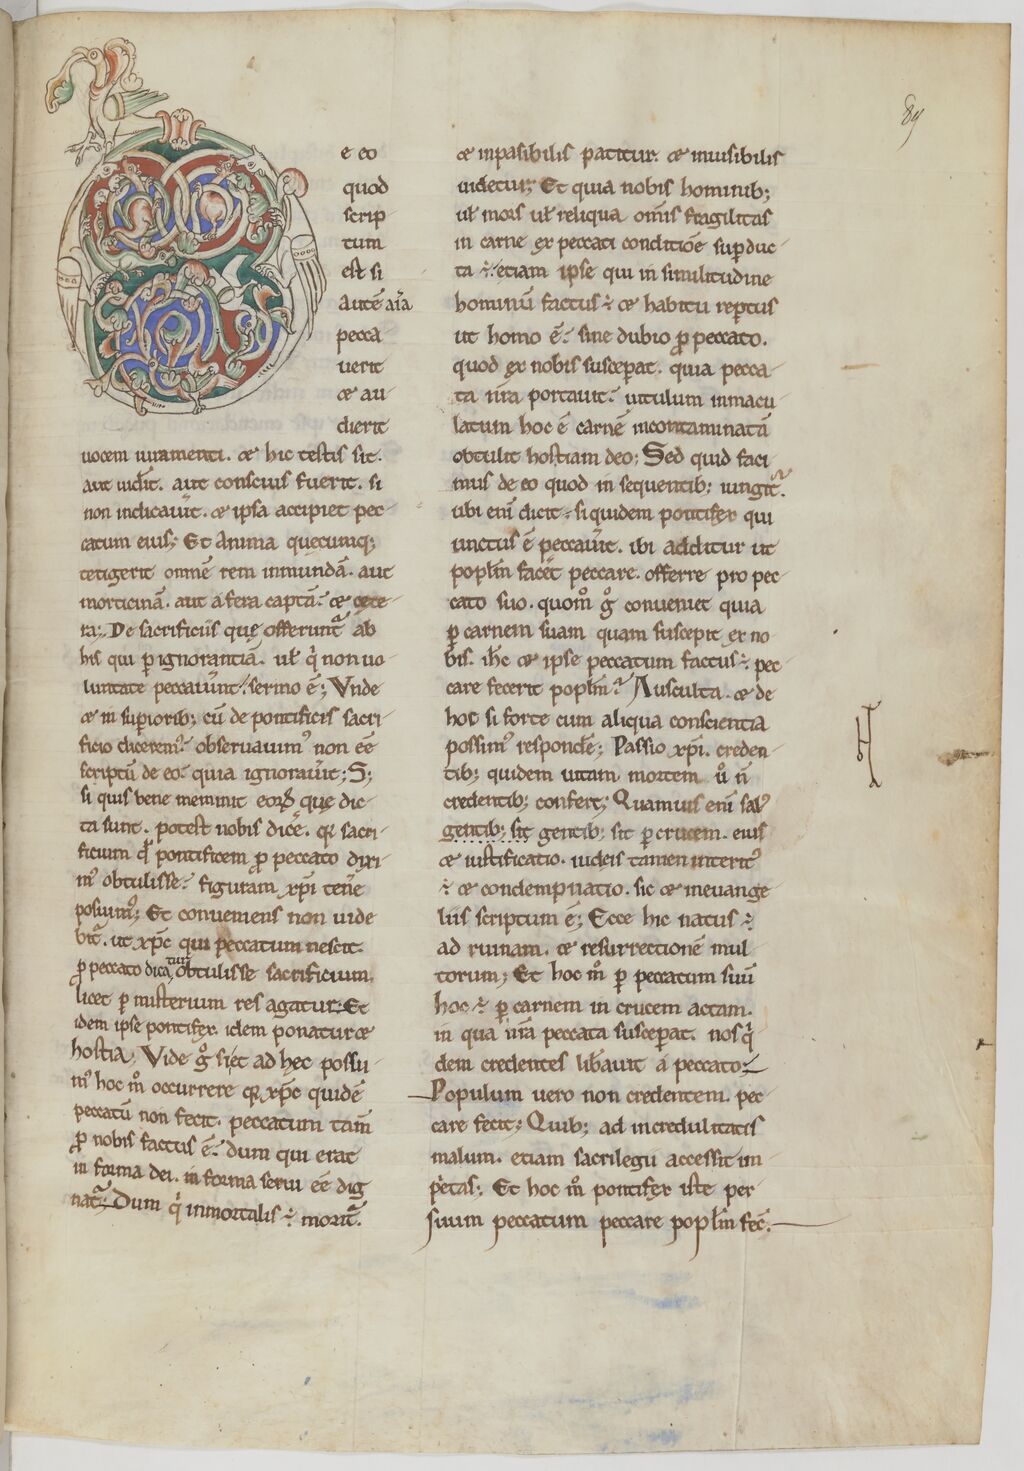 89
e eo
quod
scrip
tum
est si
autē aīa
pecca
uerit
& au
dierit
uocem iuramenti. & hic testis sit.
aut uidit. aut conscius fuerit. si
non indicauit. & ipsa accipiet pec
catum eius; Et anima quecumq;
tetigerit omnē rem inmundā. aut
morticinā. aut a fera captā. & cete
ra; De sacrificiis que offerunt᷑ ab
his qui p ignorantiā. uł qͥ non uo
luntate peccauer̄t sermo ē; Vnde
& in superiorib; cū de pontificis sacri
ficio dicerem᷒ obseruauim᷒ non eē
scriptū de eo. quia ignorauit; S;
si quis bene meminit eoꝝ que dic
ta sunt. potest nobis dicē. qͥ sacri
ficium qd pontificem ꝓ peccato dixi
m᷒ obtulisse. figuram xp̄i tenē
posuim᷒; Et conueniens non uide
bit᷑. ut xp̄c qui peccatum nescit.
ꝓ peccato dicatur obtulisse sacrificium.
licet p misterium res agatur; Et
idem ipse pontifex. idem ponatur &
hostia; Vide gͦ si & ad hec possu
m᷒ hoc mͦ occurrere qͥ xp̄c quidē
peccatū non fecit. peccatum tam̄
ꝓ nobis factus ē. dum qui erat
in forma dei. in forma serui eē dig
nat᷑; Dum qͥ inmortalis ē. morit᷑.
& inpasibilis patitur. & inuisibilis
uidetur; Et quia nobis hominib;
uł mors uł reliqua om̄is fragilitas
in carne ex peccati conditiōe supduc
ta ē. etiam ipse qui in similitudine
hominū factus ē & habitu reptus
ut homo ē. sine dubio ꝓ peccato.
quod ex nobis susceperat. quia pecca
ta nr̄a portauit. uitulum inmacu
latum hoc ē carnē incontaminatā
obtulit hostiam deo; Sed quid faci
mus de eo quod in sequentib; iungit᷑.
ubi eni dicit. siquidem pontifex qui
unctus ē peccauit. ibi additur ut
poplm̄ facet peccare. offerre pro pec
cato suo. quom̄ gͦ conueniet quia
p carnem suam quam suscepit ex no
bis. ih̄c & ipse peccatum factus ē. pec
care fecerit poplm̄. Ausculta. & de
hoc si forte cum aliqua conscientia
possim᷒ respondē; Passio xp̄i. creden
tib; quidem uitam mortem ů n̄
credentib; confert; Quamuis eni sal᷒
gentib; sit gentib; sit p crucem. eius
& iustificatio. iudeis tamen interit᷒
ē & condempnatio. sic & in euange
liis scriptum ē; Ecce hic natus ē
ad ruinam. & resurrectionē mul
torum; Et hoc mͦ p peccatum suū
hoc ē p carnem in crucem actam.
in qua nr̄a peccata susceperat. nos qͥ
dem credentes libauit a peccato;
Populum uero non credentem. pec
care fecit; Quib; ad incredulitatis
malum. etiam sacrilegii accessit im
pietas; Et hoc mͦ pontifex iste per
suum peccatum peccare poplm̄ fec̄.